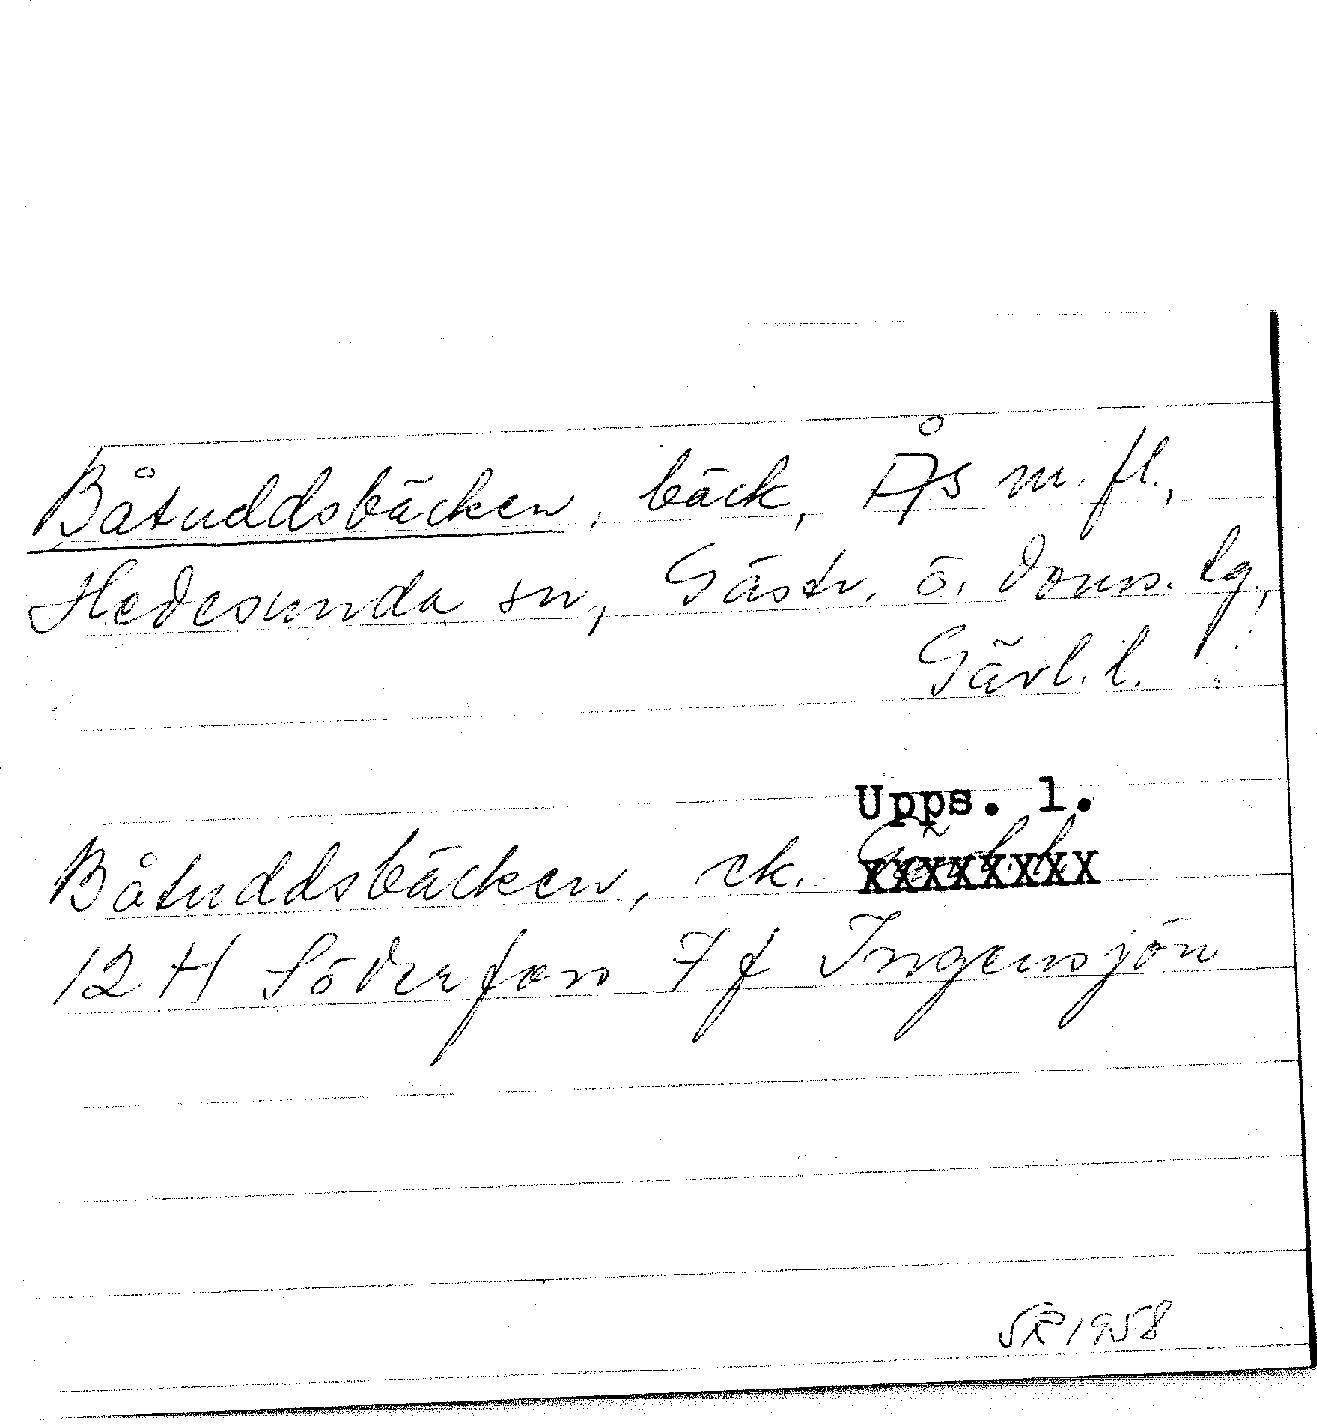 Båtuddsbäcken, bäck, Ås m. fl.,
Hedesunda sn, Gästr. ö. doms. lg,
Gävl. l.
Upps. l.
Båtuddsbäcken, ek. xxxxxxxx
12 H Söderfors 7 f Ingensjön
1958